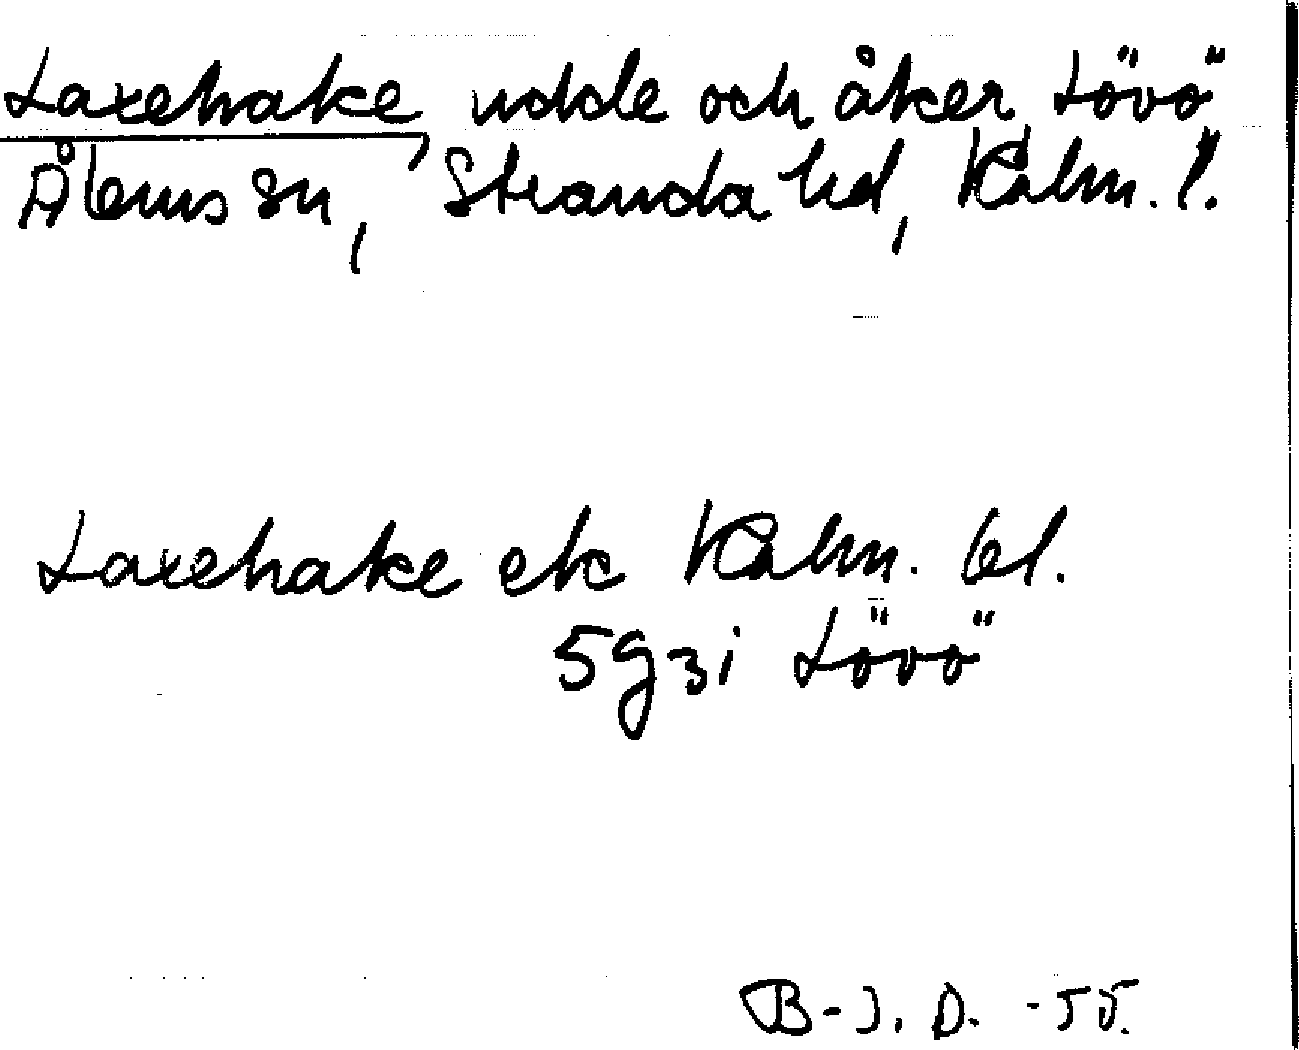 Laxehake, udde och åker, Lövö,
Ålems sn, Stranda hd, Kalm. l.
Laxehake ek Kalm. bl.
5g3i Lövö
B-J. D. -55.